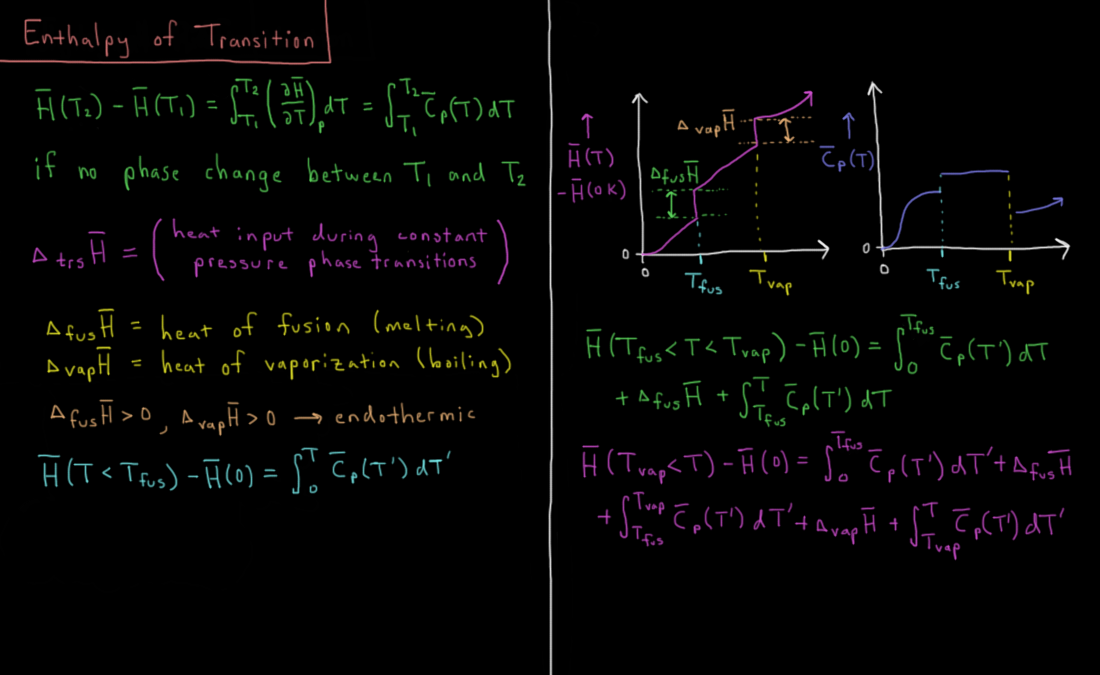 Enthalpy of Transition
H̅(T₂) − H̅(T₁) = ∫_{T₁}^{T₂} (∂H̅/∂T)ₚ dT = ∫_{T₁}^{T₂} C̅ₚ(T) dT
if no phase change between T₁ and T₂
Δ_{trs}H̅ = (heat input during constant
pressure phase transitions)
Δ_{fus}H̅ = heat of fusion (melting)
Δ_{vap}H̅ = heat of vaporization (boiling)
Δ_{fus}H̅ > 0, Δ_{vap}H̅ > 0 → endothermic
H̅(T < T_{fus}) − H̅(0) = ∫_0^T C̅ₚ(T') dT'
↑
H̅(T)
−H̅(0K)
Δ_{vap}H̅
Δ_{fus}H̅
0
0
T_{fus}
T_{vap}
↑
C̅ₚ(T)
0
0
T_{fus}
T_{vap}
H̅(T_{fus} < T < T_{vap}) − H̅(0) = ∫_0^{T_{fus}} C̅ₚ(T') dT
+ Δ_{fus}H̅ + ∫_{T_{fus}}^T C̅ₚ(T') dT
H̅(T_{vap} < T) − H̅(0) = ∫_0^{T_{fus}} C̅ₚ(T') dT' + Δ_{fus}H̅
+ ∫_{T_{fus}}^{T_{vap}} C̅ₚ(T') dT' + Δ_{vap}H̅ + ∫_{T_{vap}}^T C̅ₚ(T') dT'